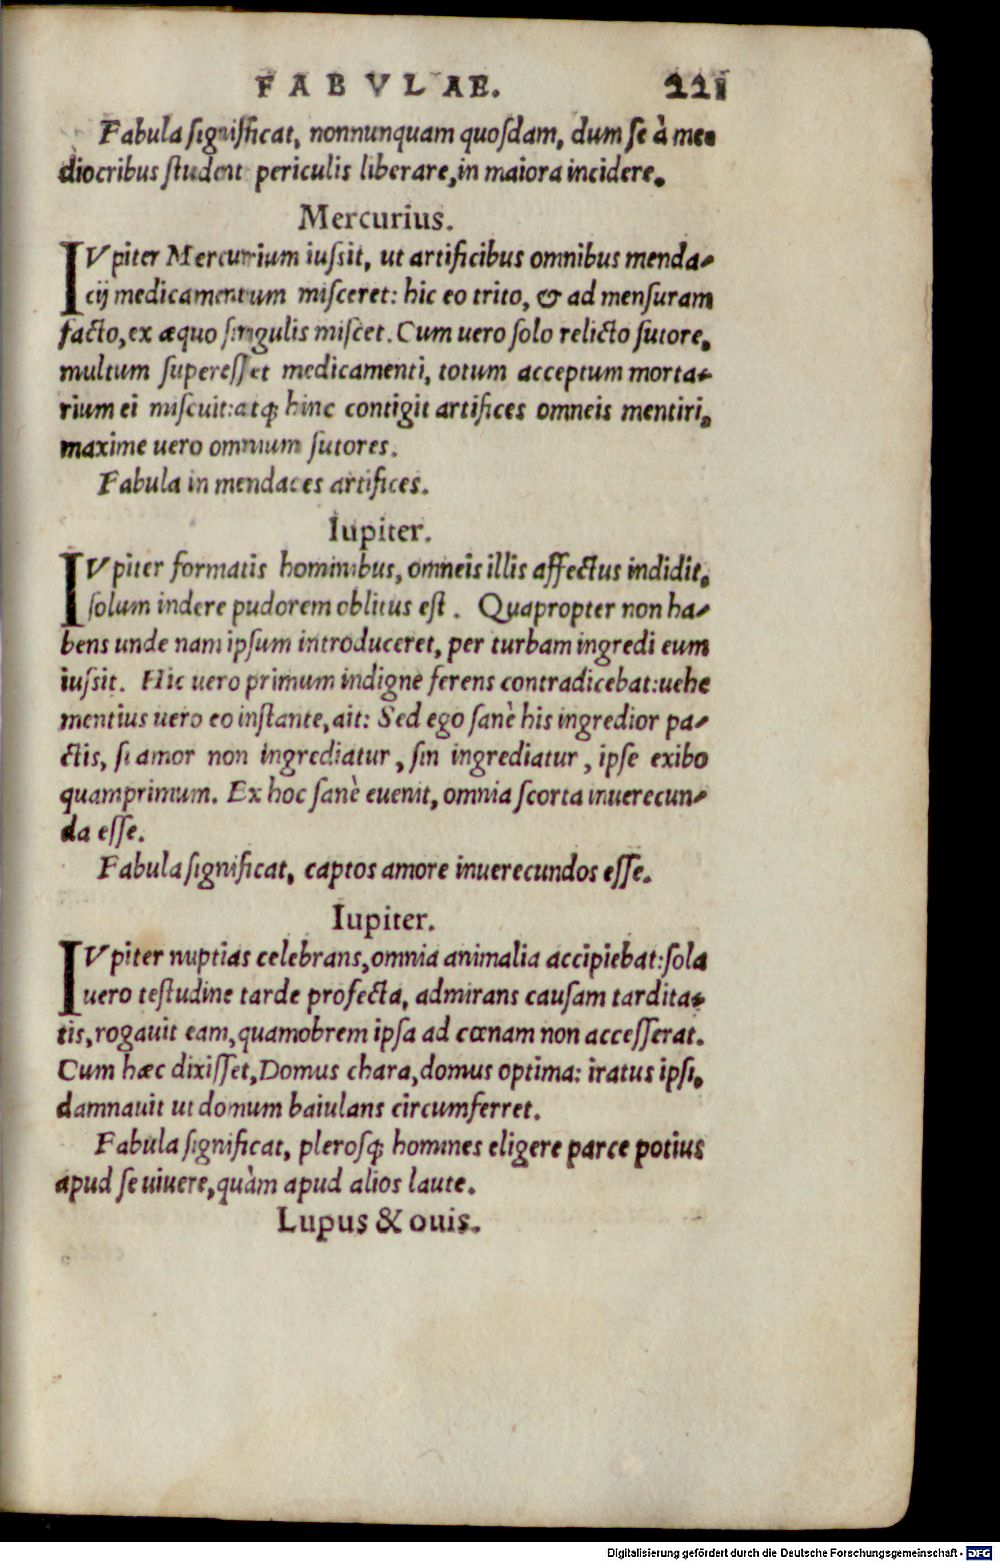 FABVLAE. 221
Fabula significat, nonnunquam quosdam, dum se à me-
diocribus student periculis liberare, in maiora incidere.
Mercurius.
IVpiter Mercurium iussit, ut artificibus omnibus menda-
cij medicamentum misceret: hic eo trito, & ad mensuram
facto, ex æquo singulis miscet. Cum uero solo relicto sutore,
multum superesset medicamenti, totum acceptum morta-
rium ei miscuit: atq; hinc contigit artifices omneis mentiri,
maxime uero omnium sutores.
Fabula in mendaces artifices.
Iupiter.
IVpiter formatis hominibus, omneis illis affectus indidit,
solum indere pudorem oblitus est. Quapropter non ha-
bens unde nam ipsum introduceret, per turbam ingredi eum
iussit. Hic uero primum indigne ferens contradicebat: uehe
mentius uero eo instante, ait: Sed ego sanè his ingredior pa-
ctis, si amor non ingrediatur, sin ingrediatur, ipse exibo
quamprimum. Ex hoc sanè euenit, omnia scorta inuerecun-
da esse.
Fabula significat, captos amore inuerecundos esse.
Iupiter.
IVpiter nuptias celebrans, omnia animalia accipiebat: sola
uero testudine tarde profecta, admirans causam tardita-
tis, rogauit eam, quamobrem ipsa ad cœnam non accesserat.
Cum hæc dixisset, Domus chara, domus optima: iratus ipsi,
damnauit ut domum baiulans circumferret.
Fabula significat, plerosq; homines eligere parce potius
apud se uiuere, quàm apud alios laute.
Lupus & ouis.
Digitalisierung gefördert durch die Deutsche Forschungsgemeinschaft - DFG